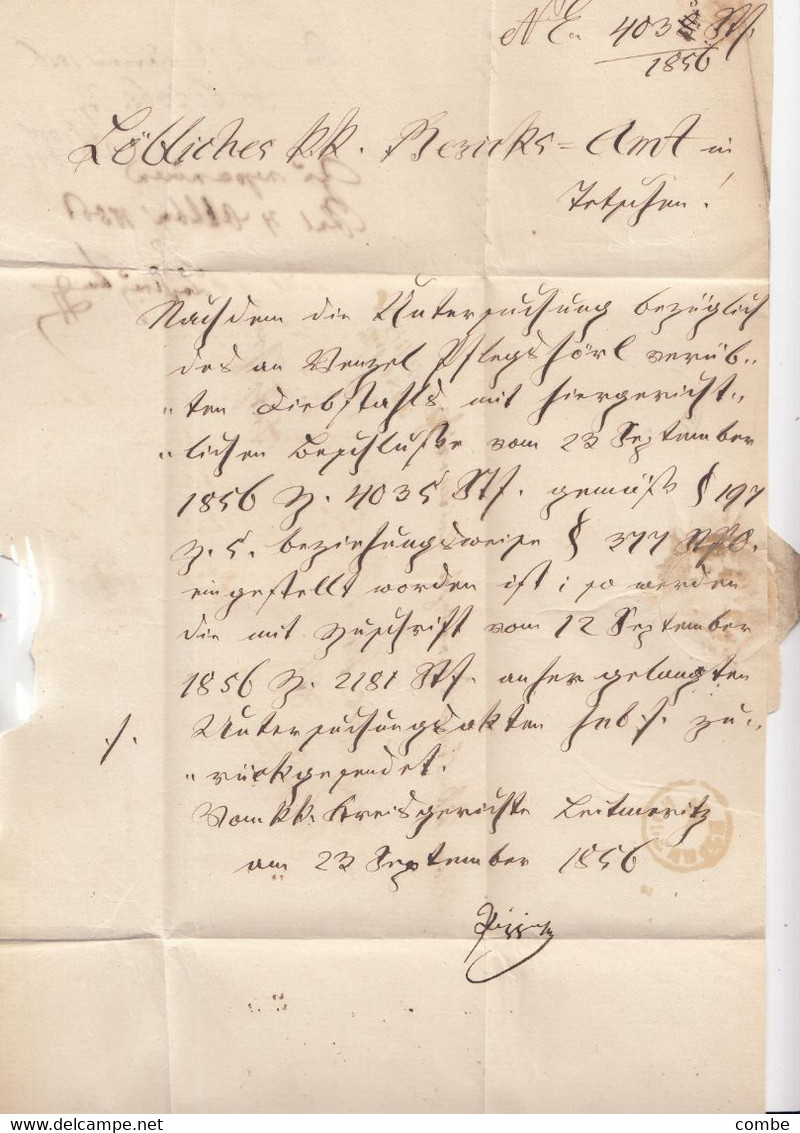 N. E. 4035 Stf.
1856
Löbliches k.k. Bezirks=Amt in
Tetschen!
Nachdem die Untersuchung bezüglich
des an Wenzel Pflegshörl verüb„
„ten Diebstahls mit hiergericht„
„lichen Beschluße vom 23 September
1856 Z. 4035 Stf. gemäß § 197
Z. 5. beziehungsweise § 377 StPO.
eingestellt worden ist; so werden
die mit Zuschrift vom 12 September
1856 Z. 2181 Stf. anher gelangten
./. Untersuchungsakten zu„
„rückgesendet.
Vom k.k. Kreisgerichte Leitmeritz
am 23 September 1856
delcampe.net
combe